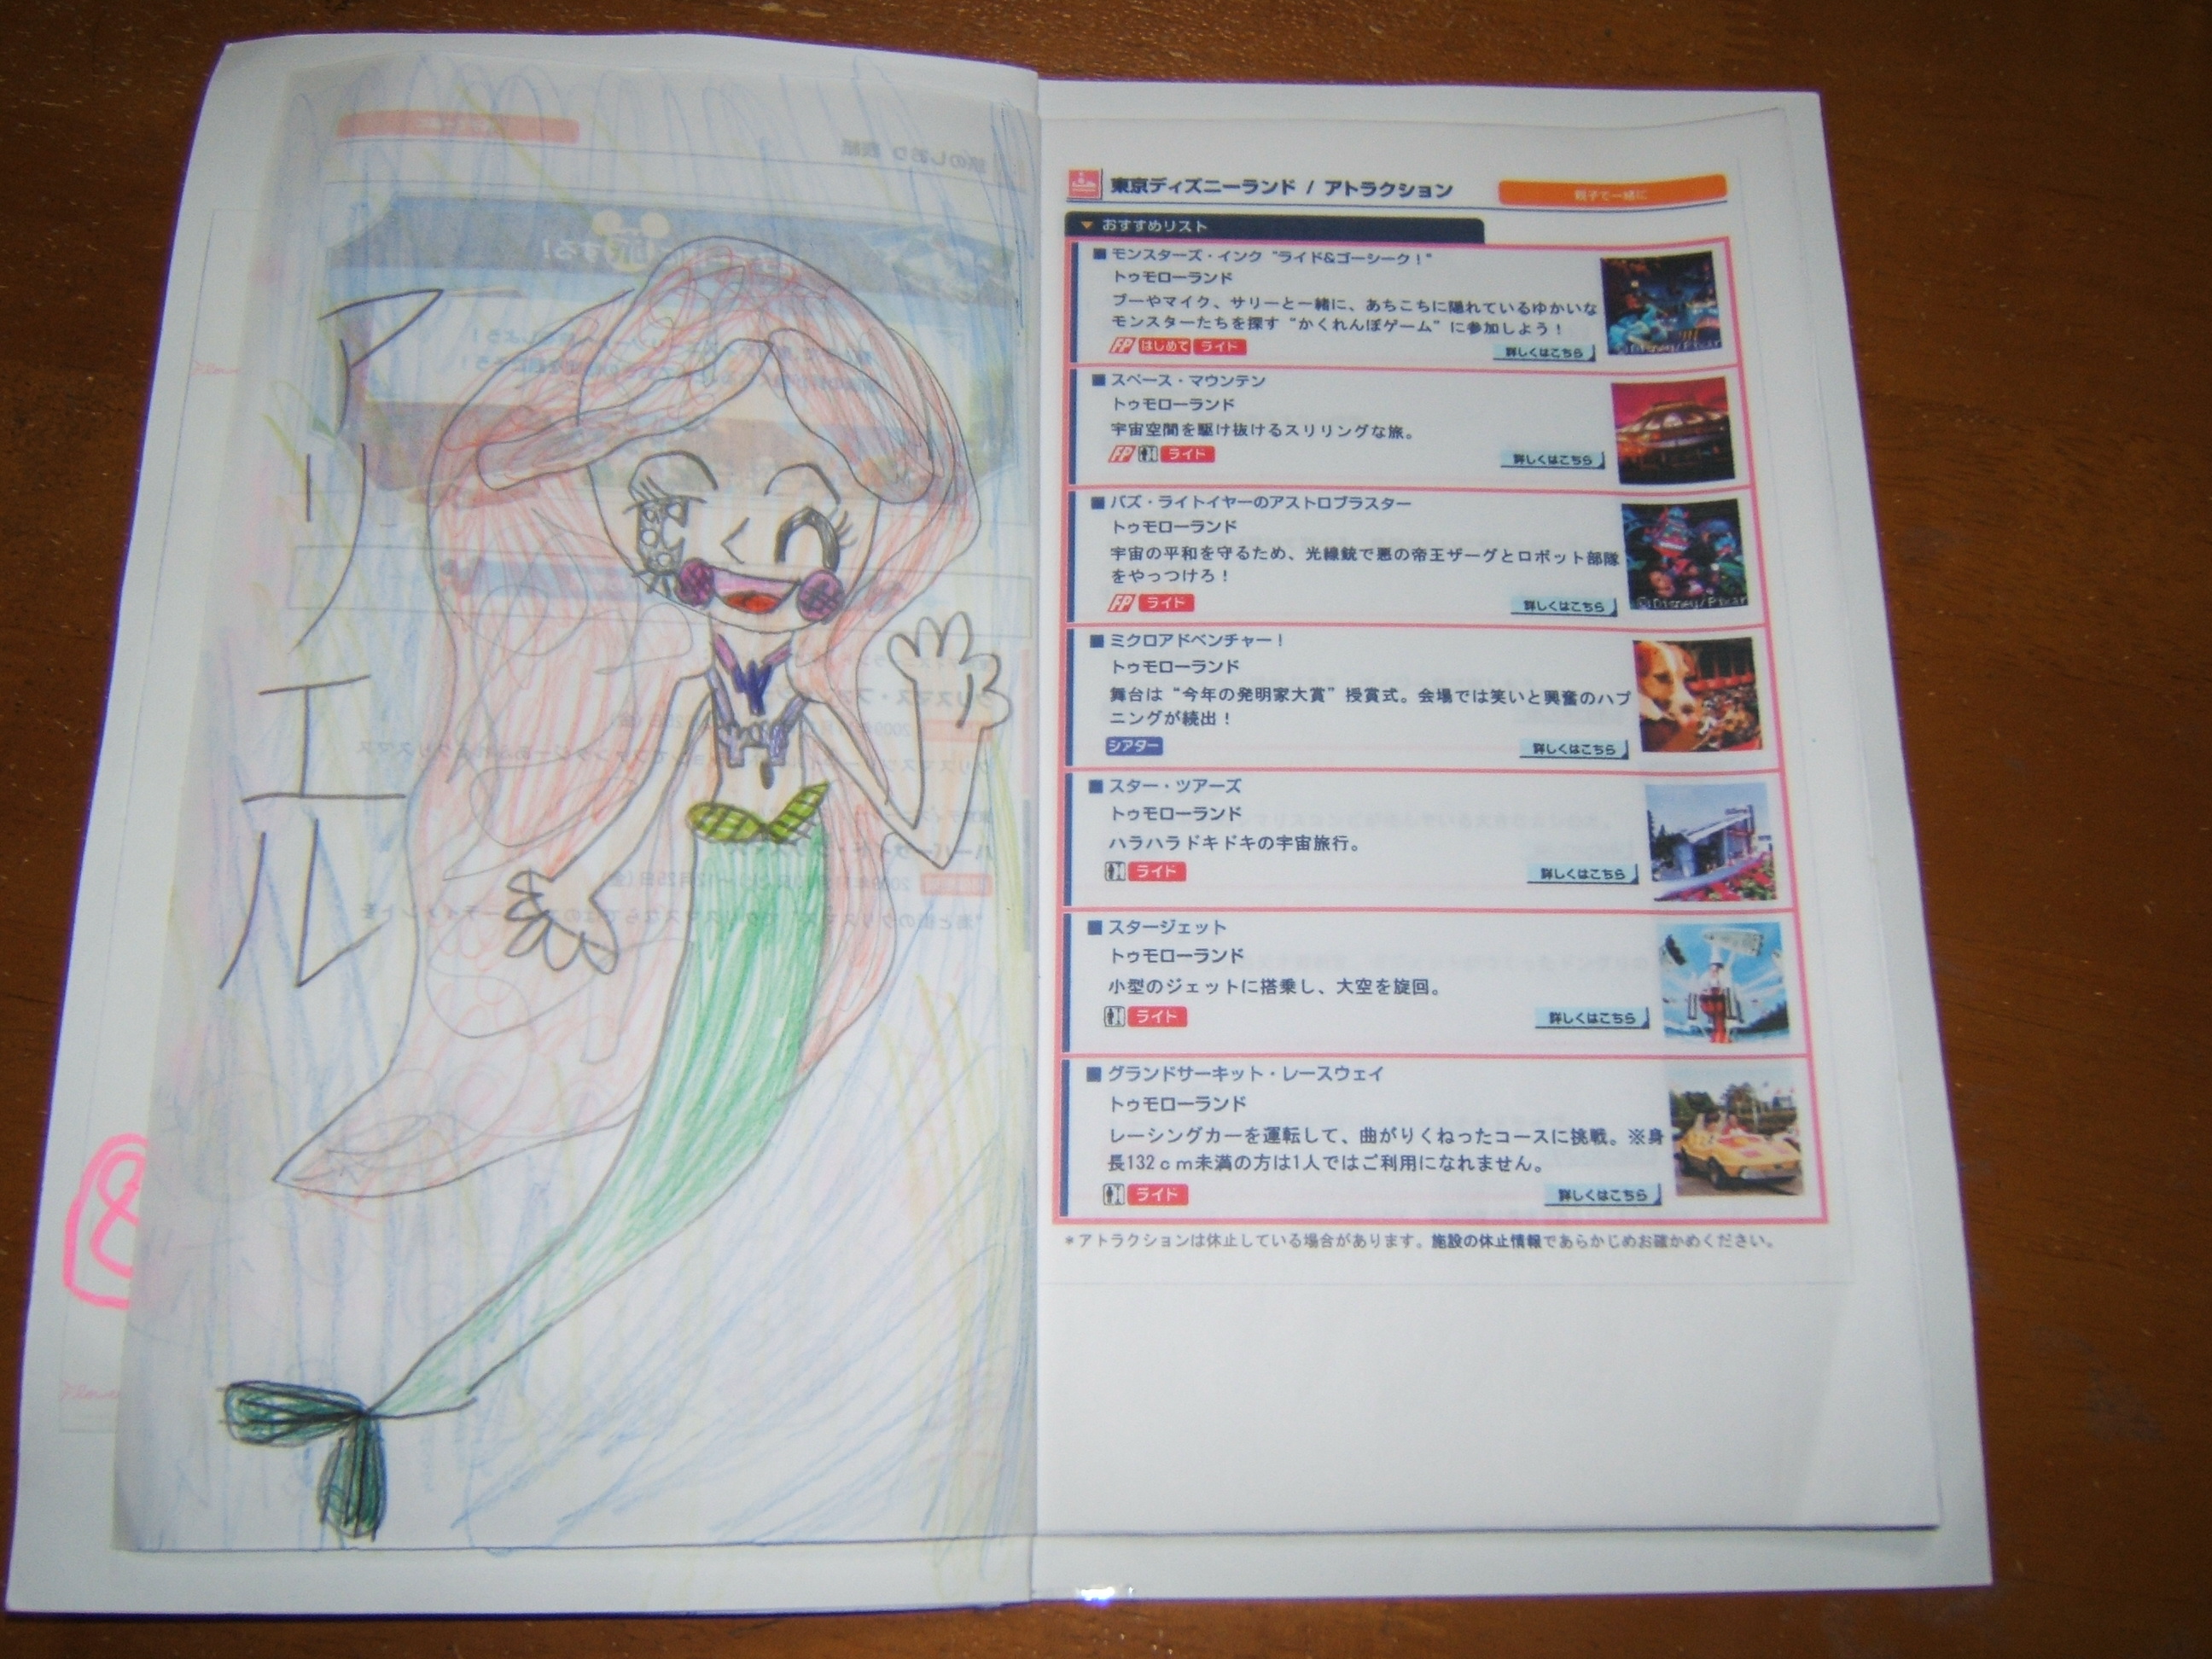 アリエル
東京ディズニーランド / アトラクション
親子で一緒に
おすすめリスト
モンスターズ・インク "ライド&ゴーシーク!"
トゥモローランド
ブーやマイク、サリーと一緒に、あちこちに隠れているゆかいな
モンスターたちを探す “かくれんぼゲーム” に参加しよう!
FP はじめて ライド
詳しくはこちら
©Disney/Pixar
スペース・マウンテン
トゥモローランド
宇宙空間を駆け抜けるスリリングな旅。
FP ライド
詳しくはこちら
バズ・ライトイヤーのアストロブラスター
トゥモローランド
宇宙の平和を守るため、光線銃で悪の帝王ザーグとロボット部隊
をやっつけろ!
FP ライド
詳しくはこちら
©Disney/Pixar
ミクロアドベンチャー!
トゥモローランド
舞台は “今年の発明家大賞” 授賞式。会場では笑いと興奮のハプ
ニングが続出!
シアター
詳しくはこちら
スター・ツアーズ
トゥモローランド
ハラハラドキドキの宇宙旅行。
ライド
詳しくはこちら
スタージェット
トゥモローランド
小型のジェットに搭乗し、大空を旋回。
ライド
詳しくはこちら
グランドサーキット・レースウェイ
トゥモローランド
レーシングカーを運転して、曲がりくねったコースに挑戦。※身
長132cm未満の方は1人ではご利用になれません。
ライド
詳しくはこちら
*アトラクションは休止している場合があります。施設の休止情報であらかじめお確かめください。